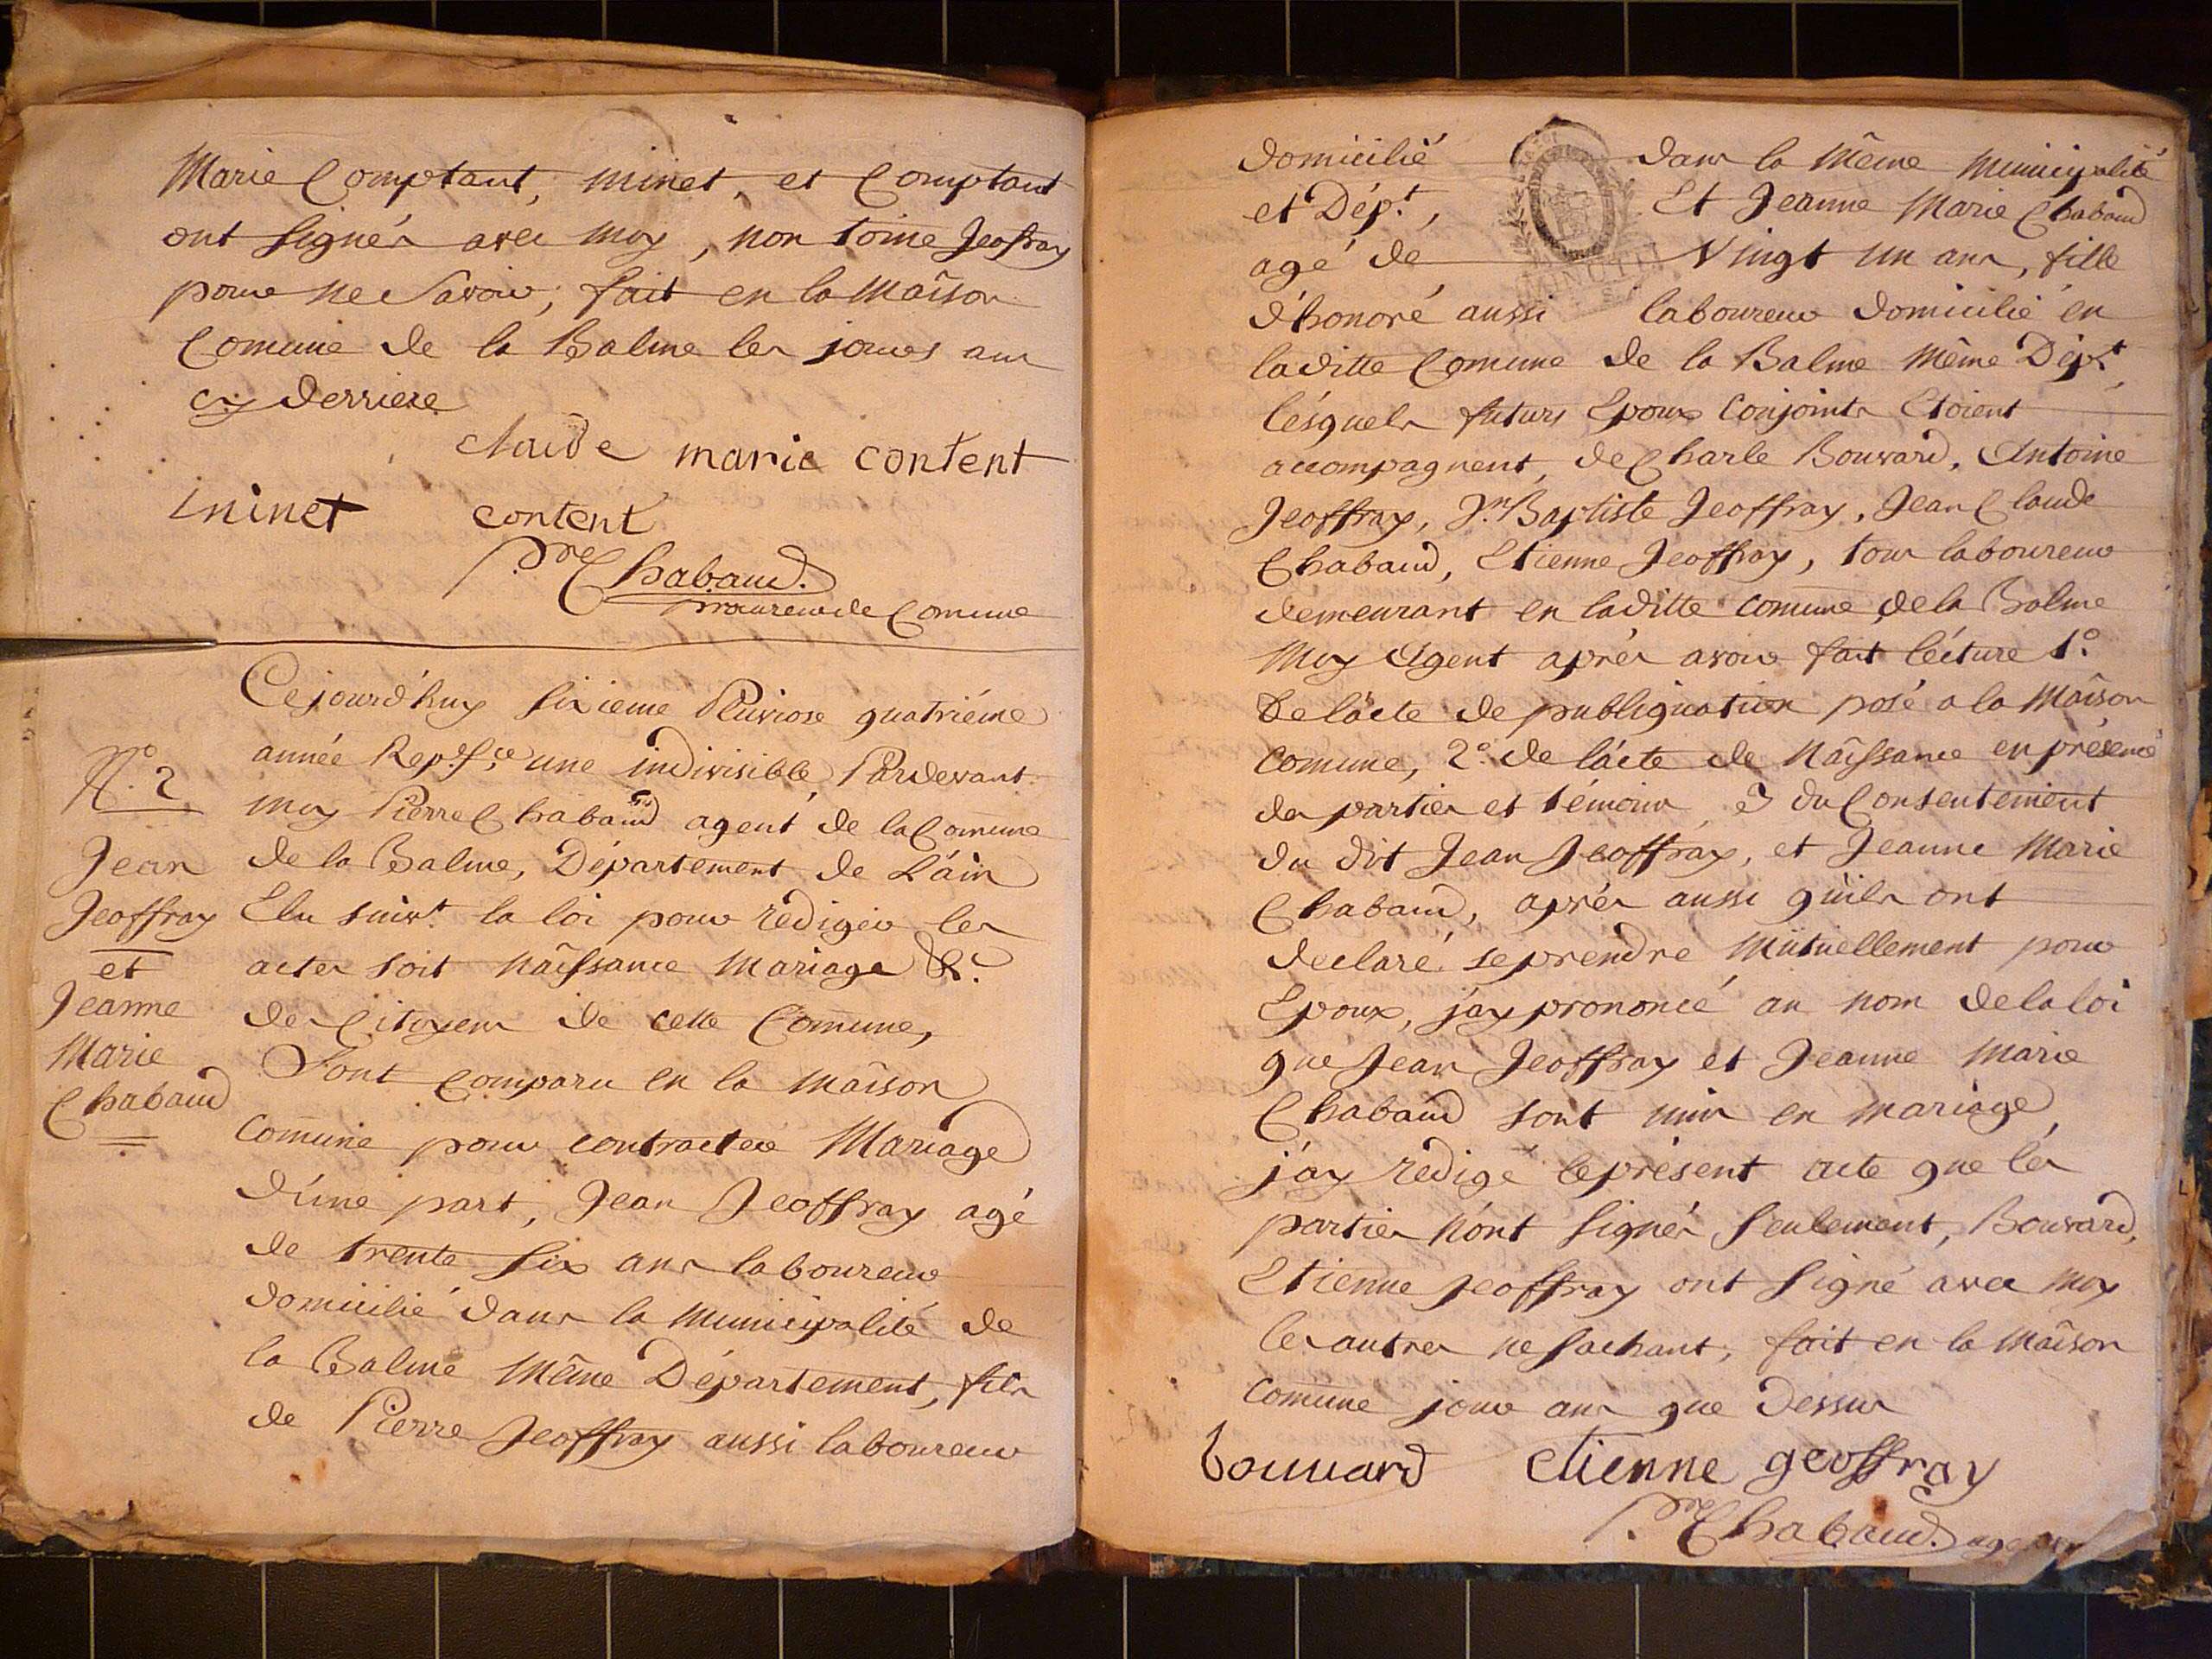 Marie Comptant, minet, et Comptant
ont signés avec moy, non toine Jeofray
pour ne Savoir, fait en la Maison
Comune de la Balme les jours ans
cy derriere
claude marie content
minet content
Pre Chabaud.
procureur de Comune
Cejourd'huy sixieme Pluviose quatriéme
année Rep. fçe une indivisible, Pardevant
moy Pierre Chabaud agent de la Comune
de la Balme, Département de L'ain
Elu suivt. la loi pour redigér les
actes soit Naissance Mariage &c.
des Citoyens de cette Comune,
Sont Comparu en la Maison
Comune pour contracter Mariage
d'une part, Jean Jeoffray agé
de trente six ans laboureur
domicilié dans la Municipalité de
la Balme Même Département, fils
de Pierre Jeoffray aussi laboureur
N.° 2
Jean
Jeoffray
et
Jeanne
Marie
Chabaud
domicilié dans la Même Municipalité
et Dép.t, Et Jeanne Marie Chabaud
agé de Vingt un ans, fille
d'honoré aussi laboureur domicilié en
laditte Comune de la Balme Même Dépt.
lésquels futurs Epoux Conjoints Etoient
accompagnent, de Charle Bouvard, Antoine
Jeoffray, Jn. Baptiste Jeoffray, Jean Claude
Chabaud, Etienne Jeoffray, tous laboureur
demeurant en laditte comune de la Balme
Moy Agent aprés avoir fait lécture 1.°
De l'acte de publiquation posé a la Maison
Comune, 2.° de l'acte de Naissance en présence
des parties et témoins, 3 du Consentement
du dit Jean Jeoffray, et Jeanne Marie
Chabaud, aprés aussi qu'ils ont
declaré se prendre Mutuellement pour
Epoux, j'ay prononcé au nom de la loi
que Jean Jeoffray et Jeanne Marie
Chabaud sont unis en mariage,
j'ay redigé le présent acte que les
parties n'ont signés seulement, Bouvard,
Etienne Jeoffray ont signé avec moy
les autres ne sachant, fait en la Maison
Comune jour ans que dessus
bouuard etienne geoffray
Pre Chabaud. agent